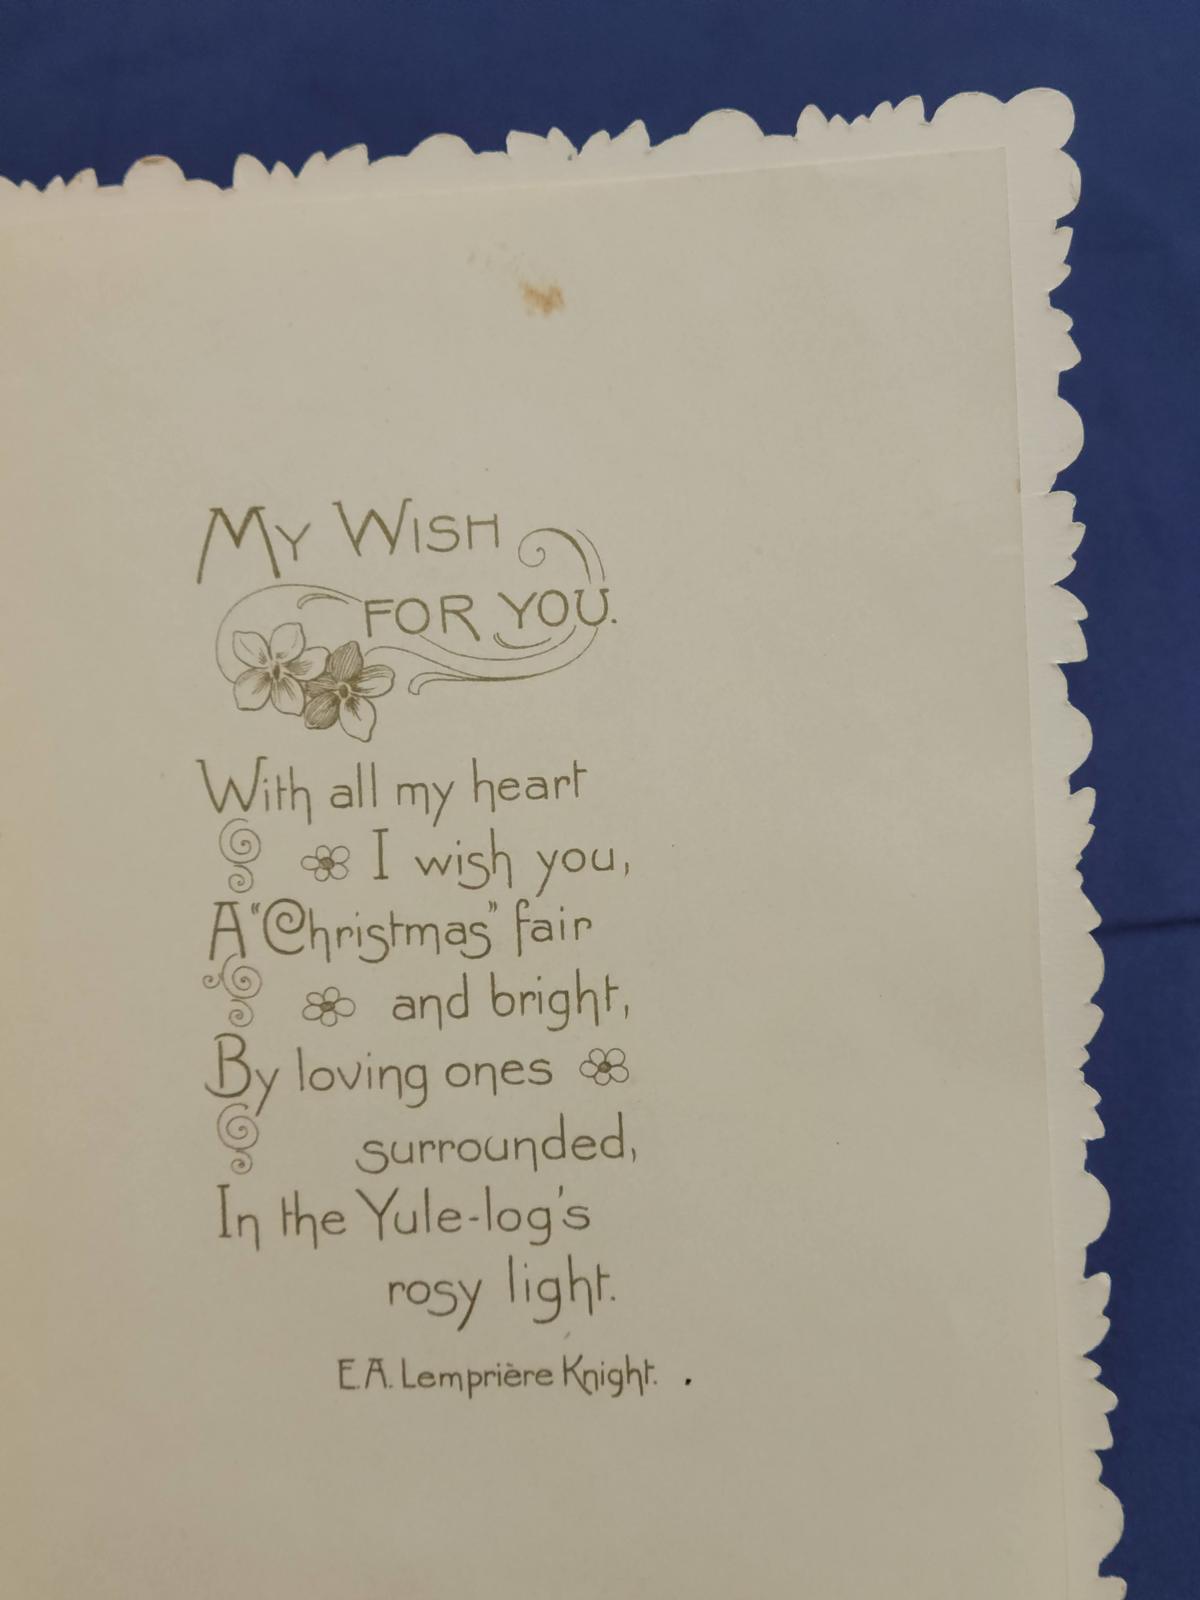 My Wish
for you.
With all my heart
I wish you,
A "Christmas" fair
and bright,
By loving ones
surrounded,
In the Yule-log's
rosy light.
E.A. Lemprière Knight.